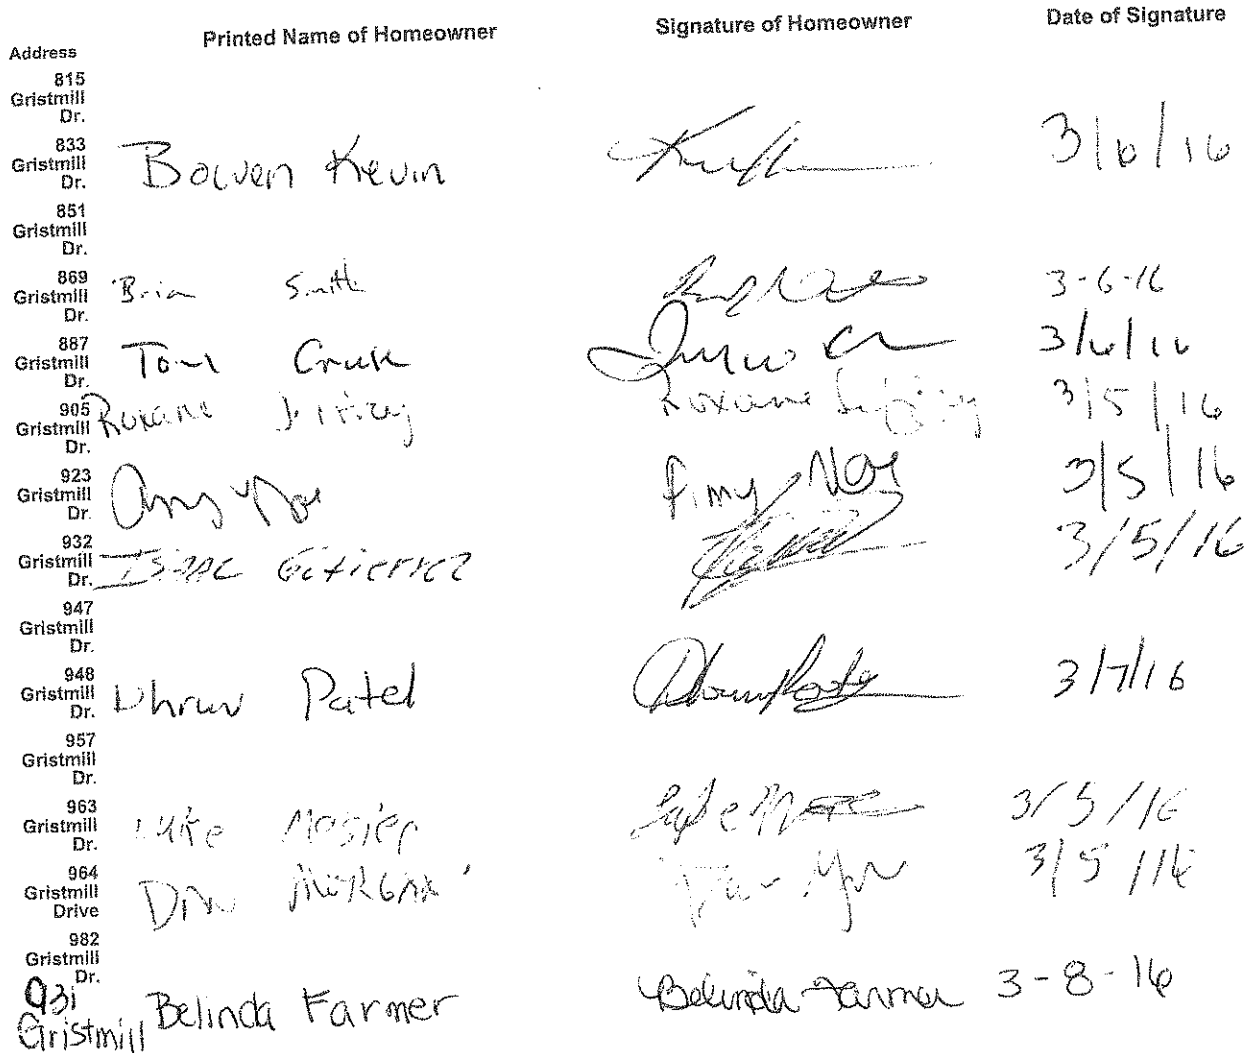 Address Printed Name of Homeowner Signature of Homeowner Date of Signature
815
Gristmill
Dr.
833
Gristmill
Dr. Bowen Kevin 3/6/16
851
Gristmill
Dr.
869
Gristmill
Dr. Brian Smith 3-6-16
887
Gristmill
Dr. Tom 3/6/16
905
Gristmill
Dr. Roxane Roxane 3/5/16
923
Gristmill
Dr. Amy Noe Amy Noe 3/5/16
932
Gristmill
Dr. Isaac Gutierrez 3/5/16
947
Gristmill
Dr.
948
Gristmill
Dr. Dhruv Patel 3/7/16
957
Gristmill
Dr.
963
Gristmill
Dr. Luke Mosier 3/5/16
964
Gristmill
Drive Drew 3/5/16
982
Gristmill
Dr.
931
Gristmill Belinda Farmer Belinda Farmer 3-8-16